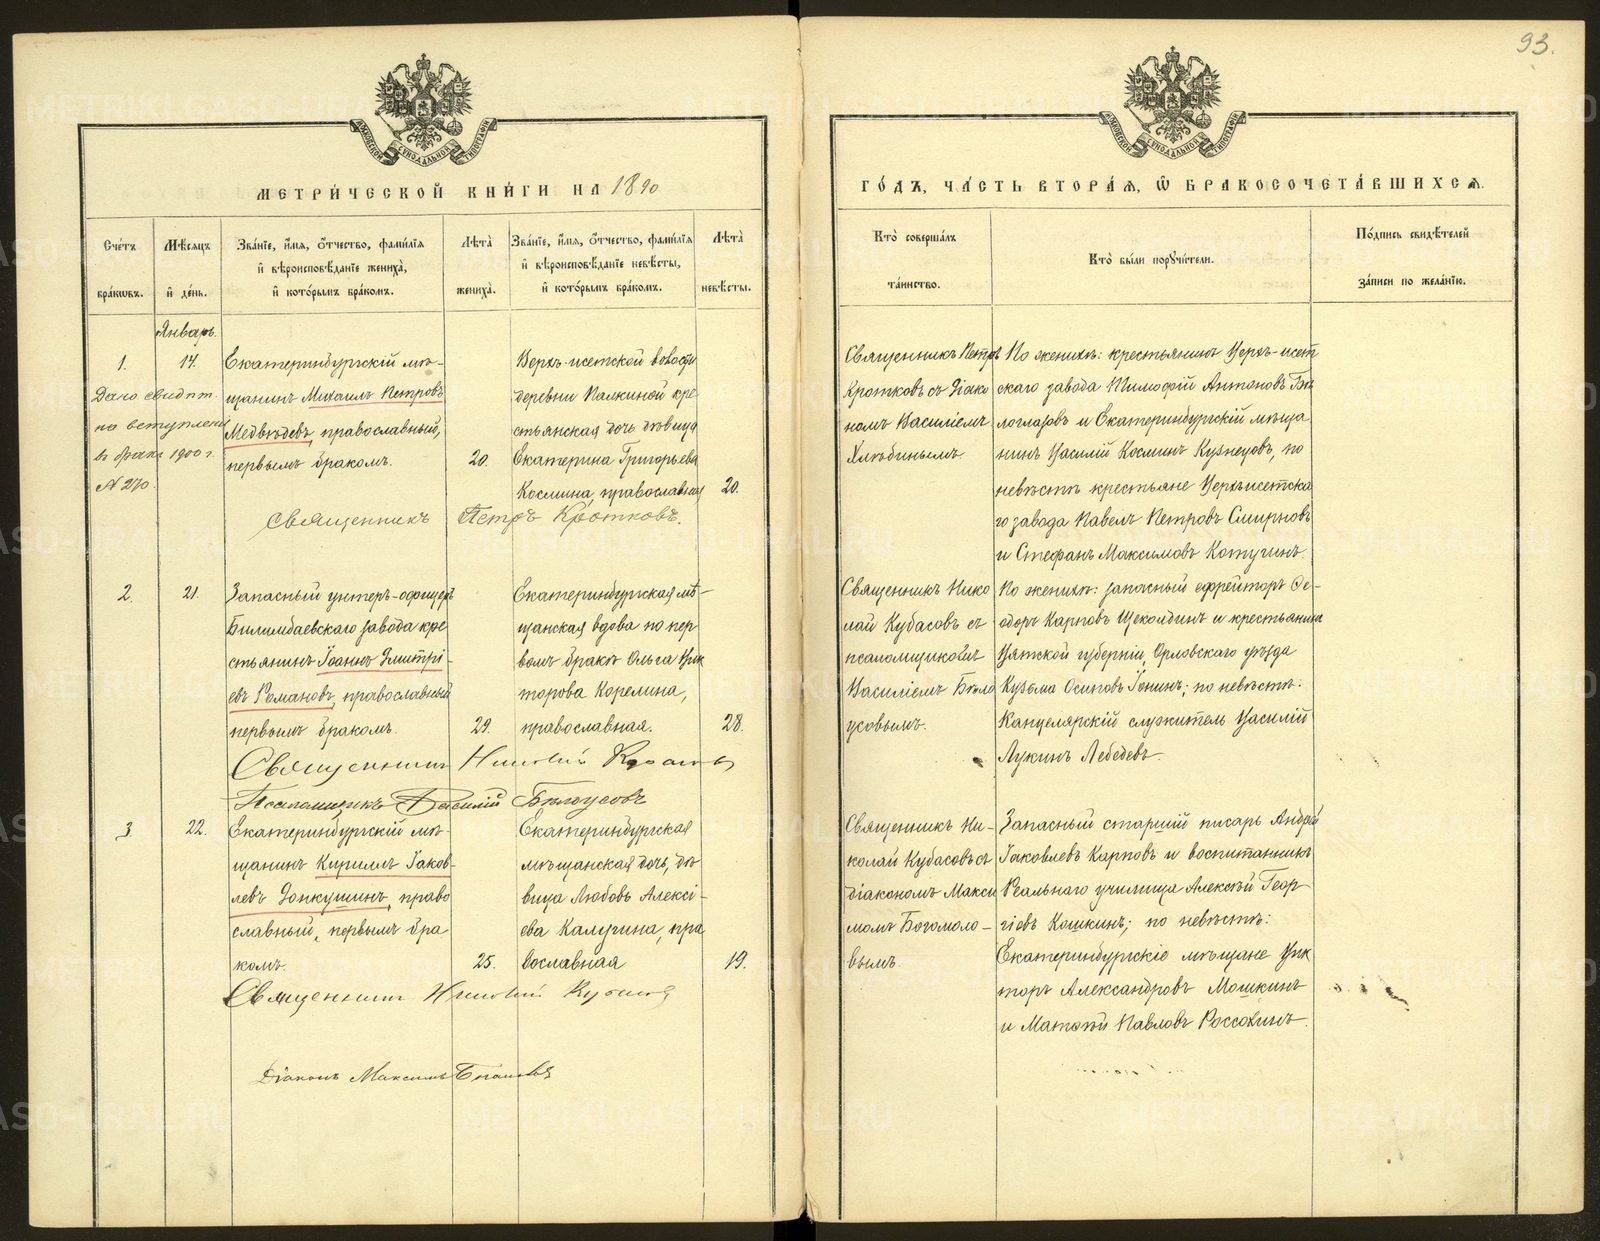 93.
МЕТРИ́ЧЕСКОЙ КНИ́ГИ НА 1890
Сче́тъ бра́кωвъ.
Мѣ́сяцъ и҆ де́нь.
Зва́нїе, и҆́мя, ѻ҆́тчество, фами́лїя
и҆ вѣроисповѣ́данїе жениха̀,
и҆ кото́рымъ бра́комъ.
Лѣ́та̀ жениха̀.
Зва́нїе, и҆́мя, ѻ҆́тчество, фами́лїя
и҆ вѣроисповѣ́данїе невѣ́сты,
и҆ кото́рымъ бра́комъ.
Лѣ́та̀ невѣ́сты.
Январь.
1.
14.
Дано свидѣт.
на вступлені
въ бракъ 1900 г.
№ 270.
Екатеринбургскій мѣ-
щанинъ Михаилъ Петровъ
Медвѣдевъ, православный,
первымъ бракомъ.
20.
Верхъ-исетской волости
деревни Палкиной кре
стьянская дочь дѣвица
Екатерина Григорьева
Космина, православная
20.
Священникъ Петръ Кротковъ.
2.
21.
Запасный унтеръ-офицеръ
Билимбаевскаго завода кре
стьянинъ Іоаннъ Дмитрі-
евъ Романовъ, православный
первымъ бракомъ.
29.
Екатеринбургская мѣ-
щанская вдова по пер
вомъ бракѣ Ольга Вик
торова Корелина,
православная.
28.
Священникъ Николай Кубасовъ
Псаломщикъ Василій Бѣлоусовъ
3
22.
Екатеринбургскій мѣ-
щанинъ Кириллъ Іаков-
левъ Донкушинъ, право
славный, первымъ бра
комъ.
25.
Екатеринбургская
мѣщанская дочь, дѣ
вица Любовь Алексі-
ева Калугина, пра
вославная
19.
Священникъ Николай Кубасовъ
Діаконъ Максимъ Богомоловъ
ГО́ДЪ, ЧА́СТЬ ВТОРА́Я, Ѽ БРАКОСОЧЕТА́ВШИХСѦ.
Кто̀ соверша́лъ
та́инство.
Кто̀ бы́ли поручи́тели.
По́дпись свидѣ́телей
за́писи по жела́нїю.
Священникъ Петръ
Кротковъ съ діако
номъ Василіемъ
Хлѣбинымъ
По женихѣ: крестьянинъ Верхъ-исет
скаго завода Тимофій Антоновъ Бѣ
логлазовъ и Екатеринбургскій мѣща
нинъ Василій Косминъ Кузнецовъ, по
невѣстѣ крестьяне Верхъисетска
го завода Павелъ Петровъ Смирновъ
и Стефанъ Максимовъ Котугинъ.
Священникъ Нико
лай Кубасовъ съ
псаломщикомъ
Василіемъ Бѣло
усовымъ.
По женихѣ: запасный ефрейторъ Ѳе-
одоръ Карповъ Щеколдинъ и крестьянинъ
Вятской губерніи, Орловскаго уѣзда
Кузьма Осиповъ Іонинъ; по невѣстѣ:
Канцелярскій служитель Василій
Лукинъ Лебедевъ.
Священникъ Ни-
колай Кубасовъ съ
діакономъ Макси
момъ Богомоло-
вымъ.
Запасный старшій писарь Андрей
Іаковлевъ Карповъ и воспитанникъ
Реальнаго училища Алексѣй Геор
гіевъ Кошкинъ; по невѣстѣ:
Екатеринбургскіе мѣщане Вик
торъ Александровъ Мошкинъ
и Матѳѣй Павловъ Россохинъ.
METRIKI.GASO-URAL.RU